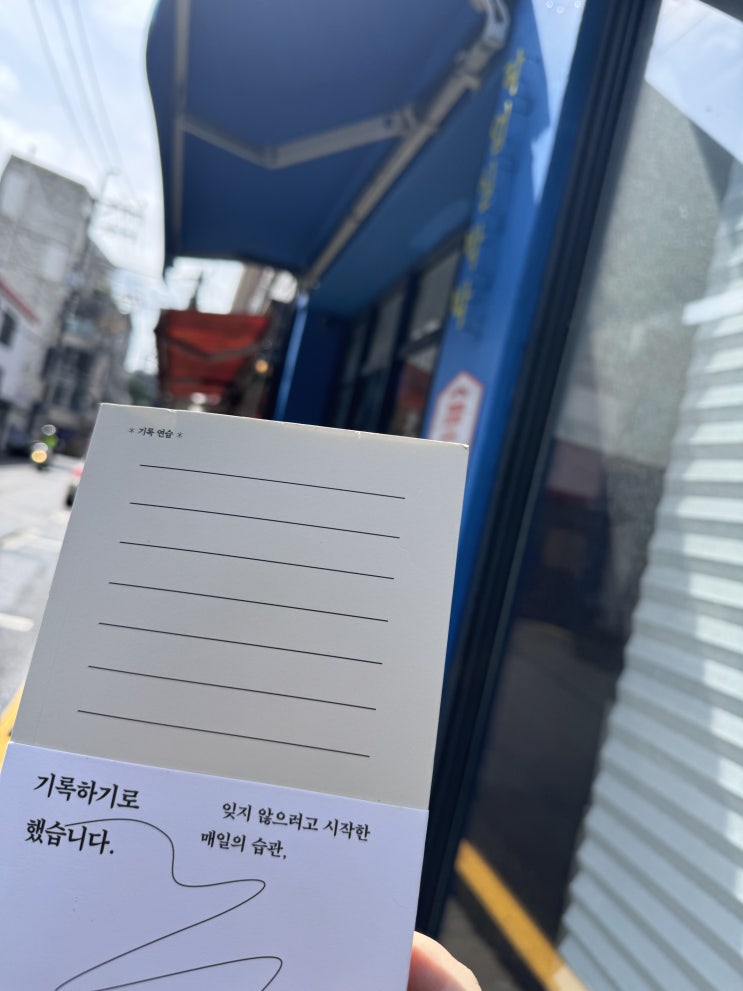 * 기록 연습 *
기록하기로
했습니다.
잊지 않으려고 시작한
매일의 습관,